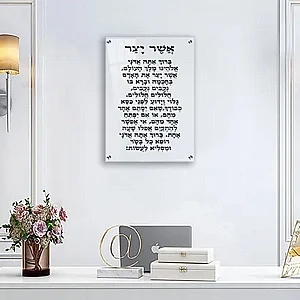 אֲשֶׁר יָצַר
בָּרוּךְ אַתָּה אֲדֹנָי
אֱלֹהֵינוּ מֶלֶךְ הָעוֹלָם,
אֲשֶׁר יָצַר אֶת הָאָדָם
בְּחָכְמָה וּבָרָא בוֹ
נְקָבִים נְקָבִים,
חֲלוּלִים חֲלוּלִים.
גָּלוּי וְיָדוּעַ לִפְנֵי כִסֵּא
כְבוֹדֶךָ,שֶׁאִם יִסָּתֵם אֶחָד
מֵהֶם, אוֹ אִם יִפָּתַח
אֶחָד מֵהֶם, אִי אֶפְשַׁר
לְהִתְקַיֵּם אֲפִלּוּ שָׁעָה
אֶחָת. בָּרוּךְ אַתָּה אֲדֹנָי
רוֹפֵא כָל בָּשָׂר
וּמַפְלִיא לַעֲשׂוֹת:
@